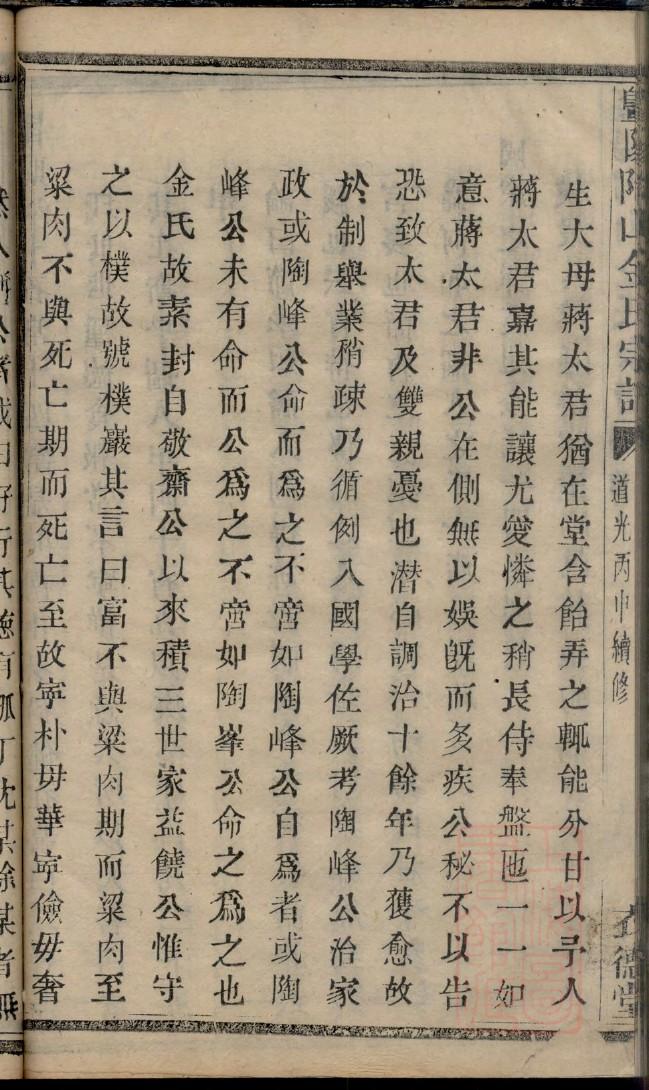 暨陽陶山金氏宗譜 道光丙申續修 德堂
生大母蔣太君猶在堂含飴弄之輒能分甘以予人
蔣太君嘉其能讓尤愛憐之稍長侍奉盤匜一一如
意蔣太君非公在側無以娛旣而多疾公秘不以告
恐致太君及雙親憂也潛自調治十餘年乃獲愈故
於制舉業稍疎乃循例入國學佐厥考陶峰公治家
政或陶峰公命而爲之不啻如陶峰公自爲者或陶
峰公未有命而公爲之不啻如陶峯公命之爲之也
金氏故素封自敬齋公以來積三世家益饒公惟守
之以樸故號樸巖其言曰富不與粱肉期而粱肉至
粱肉不與死亡期而死亡至故寧朴毋華寧儉毋奢